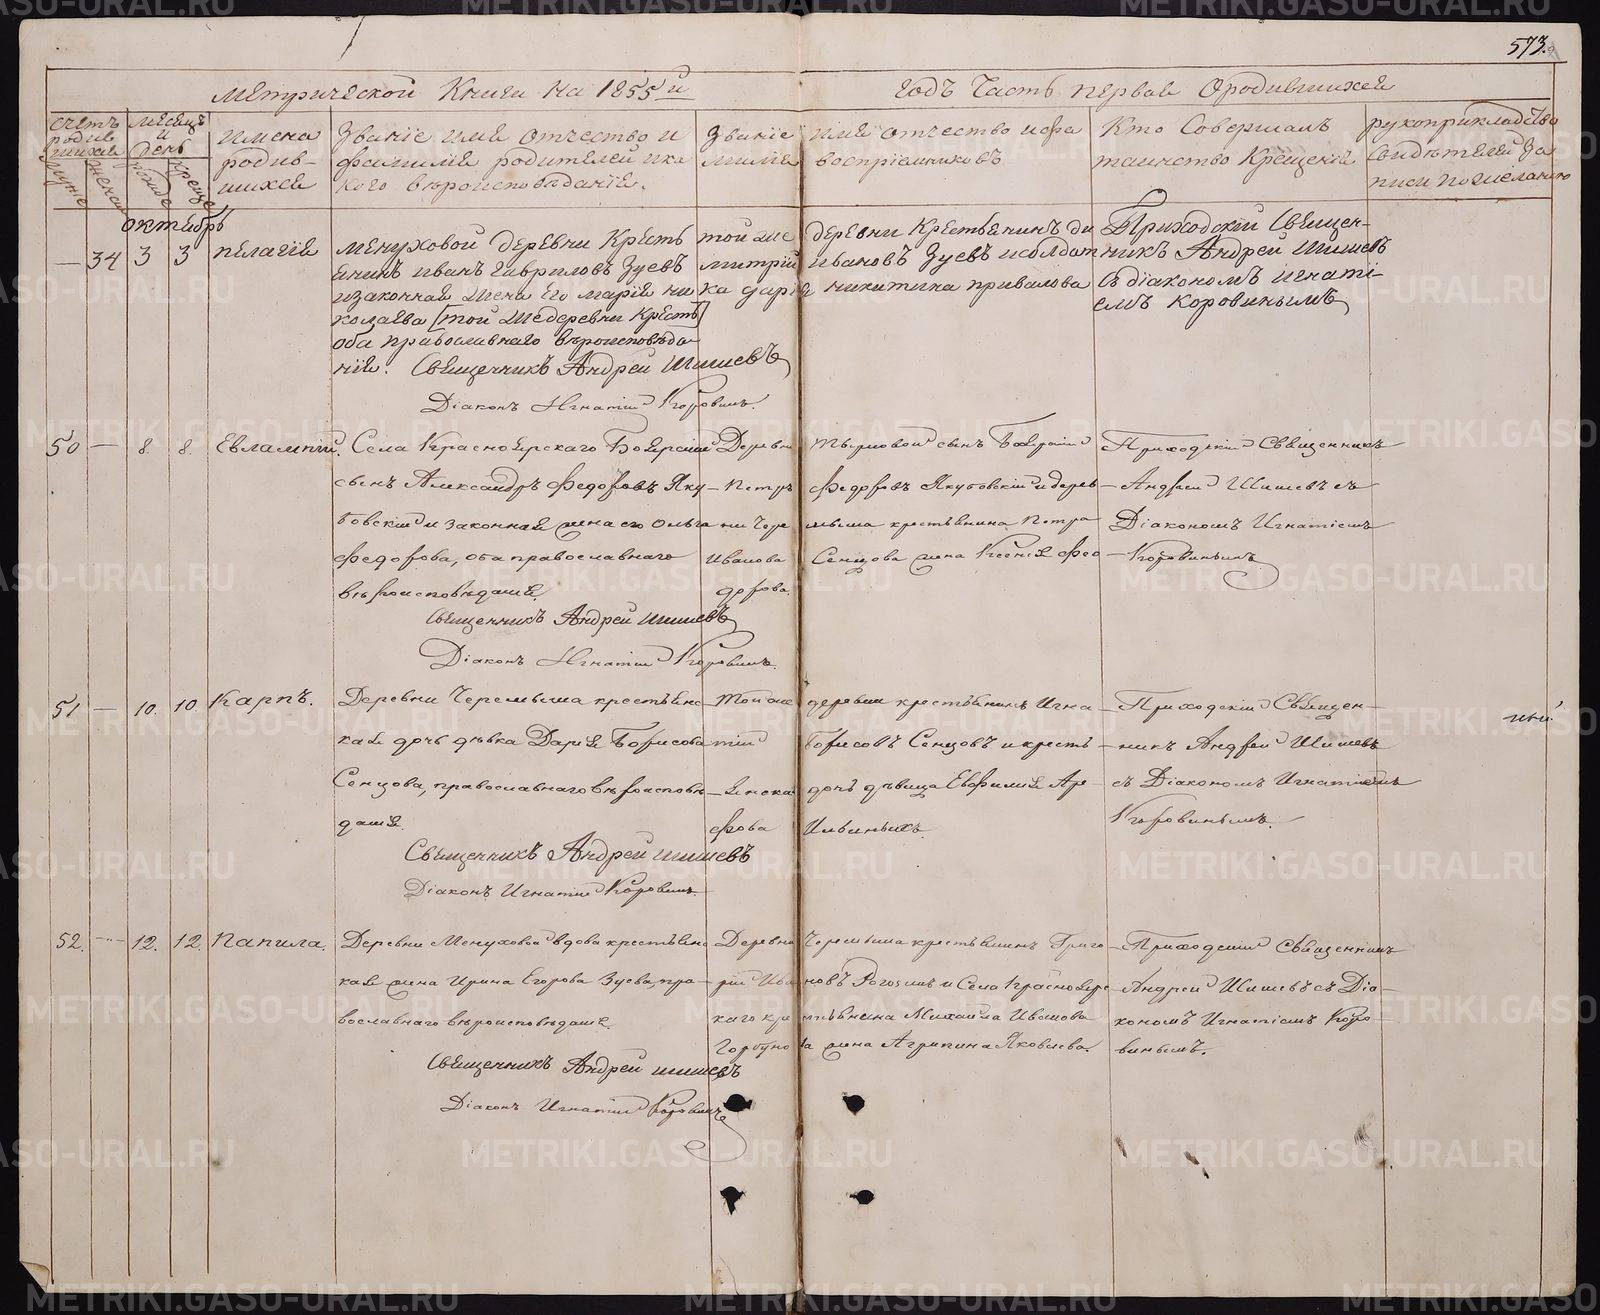 573.
Метрической Книги на 1855й годъ Часть первая О родившихся
Счетъ родившихся
Мужие
Женска
Месяцъ и день
рожде
Креще
имена родив-
шихся
Званіе имя отчество и
фамилія родителей и ка
кого вѣроисповѣданія.
Званіе имя отчество и фа
милія воспріемниковъ
Кто Совершалъ
таинство Крещенія
рукоприкладство
Свидѣтелей за
писи по желанію
Октябрь
— 34 3 3 Пелагія
Менуховой деревни Кресть
янинъ иванъ Гавриловъ Зуевъ
и законная жена Его Марія Ни
колаева [той же деревни Кресть]
оба православнаго вѣроисповѣда
нія. Священникъ Андрей Шишевъ
Діаконъ Игнатій Коровинъ.
той же деревни Крестьянинъ ди
митрій ивановъ Зуевъ и солдат
ка дарія никитина привалова
Приходскій Священ-
никъ Андрей Шишевъ
съ діакономъ игнаті-
емъ Коровинымъ
50 — 8. 8. Евлампій.
Села Красноярскаго Боярскій
сынъ Александръ Федоровъ Яку-
бовскій и законная жена его Ольга
Федорова, оба православнаго
вѣроисповѣданія.
Священникъ Андрей Шишевъ
Діаконъ Игнатій Коровинъ.
Деревни сынъ Боярскій
Петръ Федоровъ Якубовскій и дерев
ни Черемыша крестьянина Петра
Иванова Сенцова жена Ксенія Фео
дорова.
Приходскій Священникъ
Андрей Шишевъ съ
Діакономъ Игнатіемъ
Коровинымъ
51 — 10. 10. Карпъ.
Деревни Черемыша крестьянс
кая дочь дѣвка Дарья Борисова
Сенцова, православнаго вѣроисповѣ-
данія.
Священникъ Андрей Шишевъ
Діаконъ Игнатій Коровинъ.
Той же деревни крестьянинъ Игна
тій Борисовъ Сенцовъ и кресть-
янская дочь дѣвица Евфимія Ар-
фова Ильиныхъ.
Приходскій Священ-
никъ Андрей Шишевъ
съ Діакономъ Игнатіемъ
Коровинымъ.
52. — 12. 12. Папила.
Деревни Менуховой вдова крестьянс
кая жена Ирина Егорова Зуева, пра-
вославнаго вѣроисповѣданія.
Священникъ Андрей Шишевъ
Діаконъ Игнатій Коровинъ
Деревни Черемыша крестьянинъ Григо
рій Ивановъ Рогозинъ и Села Красноярс
каго крестьянина Михаила Иванова
Горбунова жена Агрипина Яковлева.
Приходскій Священникъ
Андрей Шишевъ съ Діа-
кономъ Игнатіемъ Коро-
винымъ.
METRIKI.GASO-URAL.RU